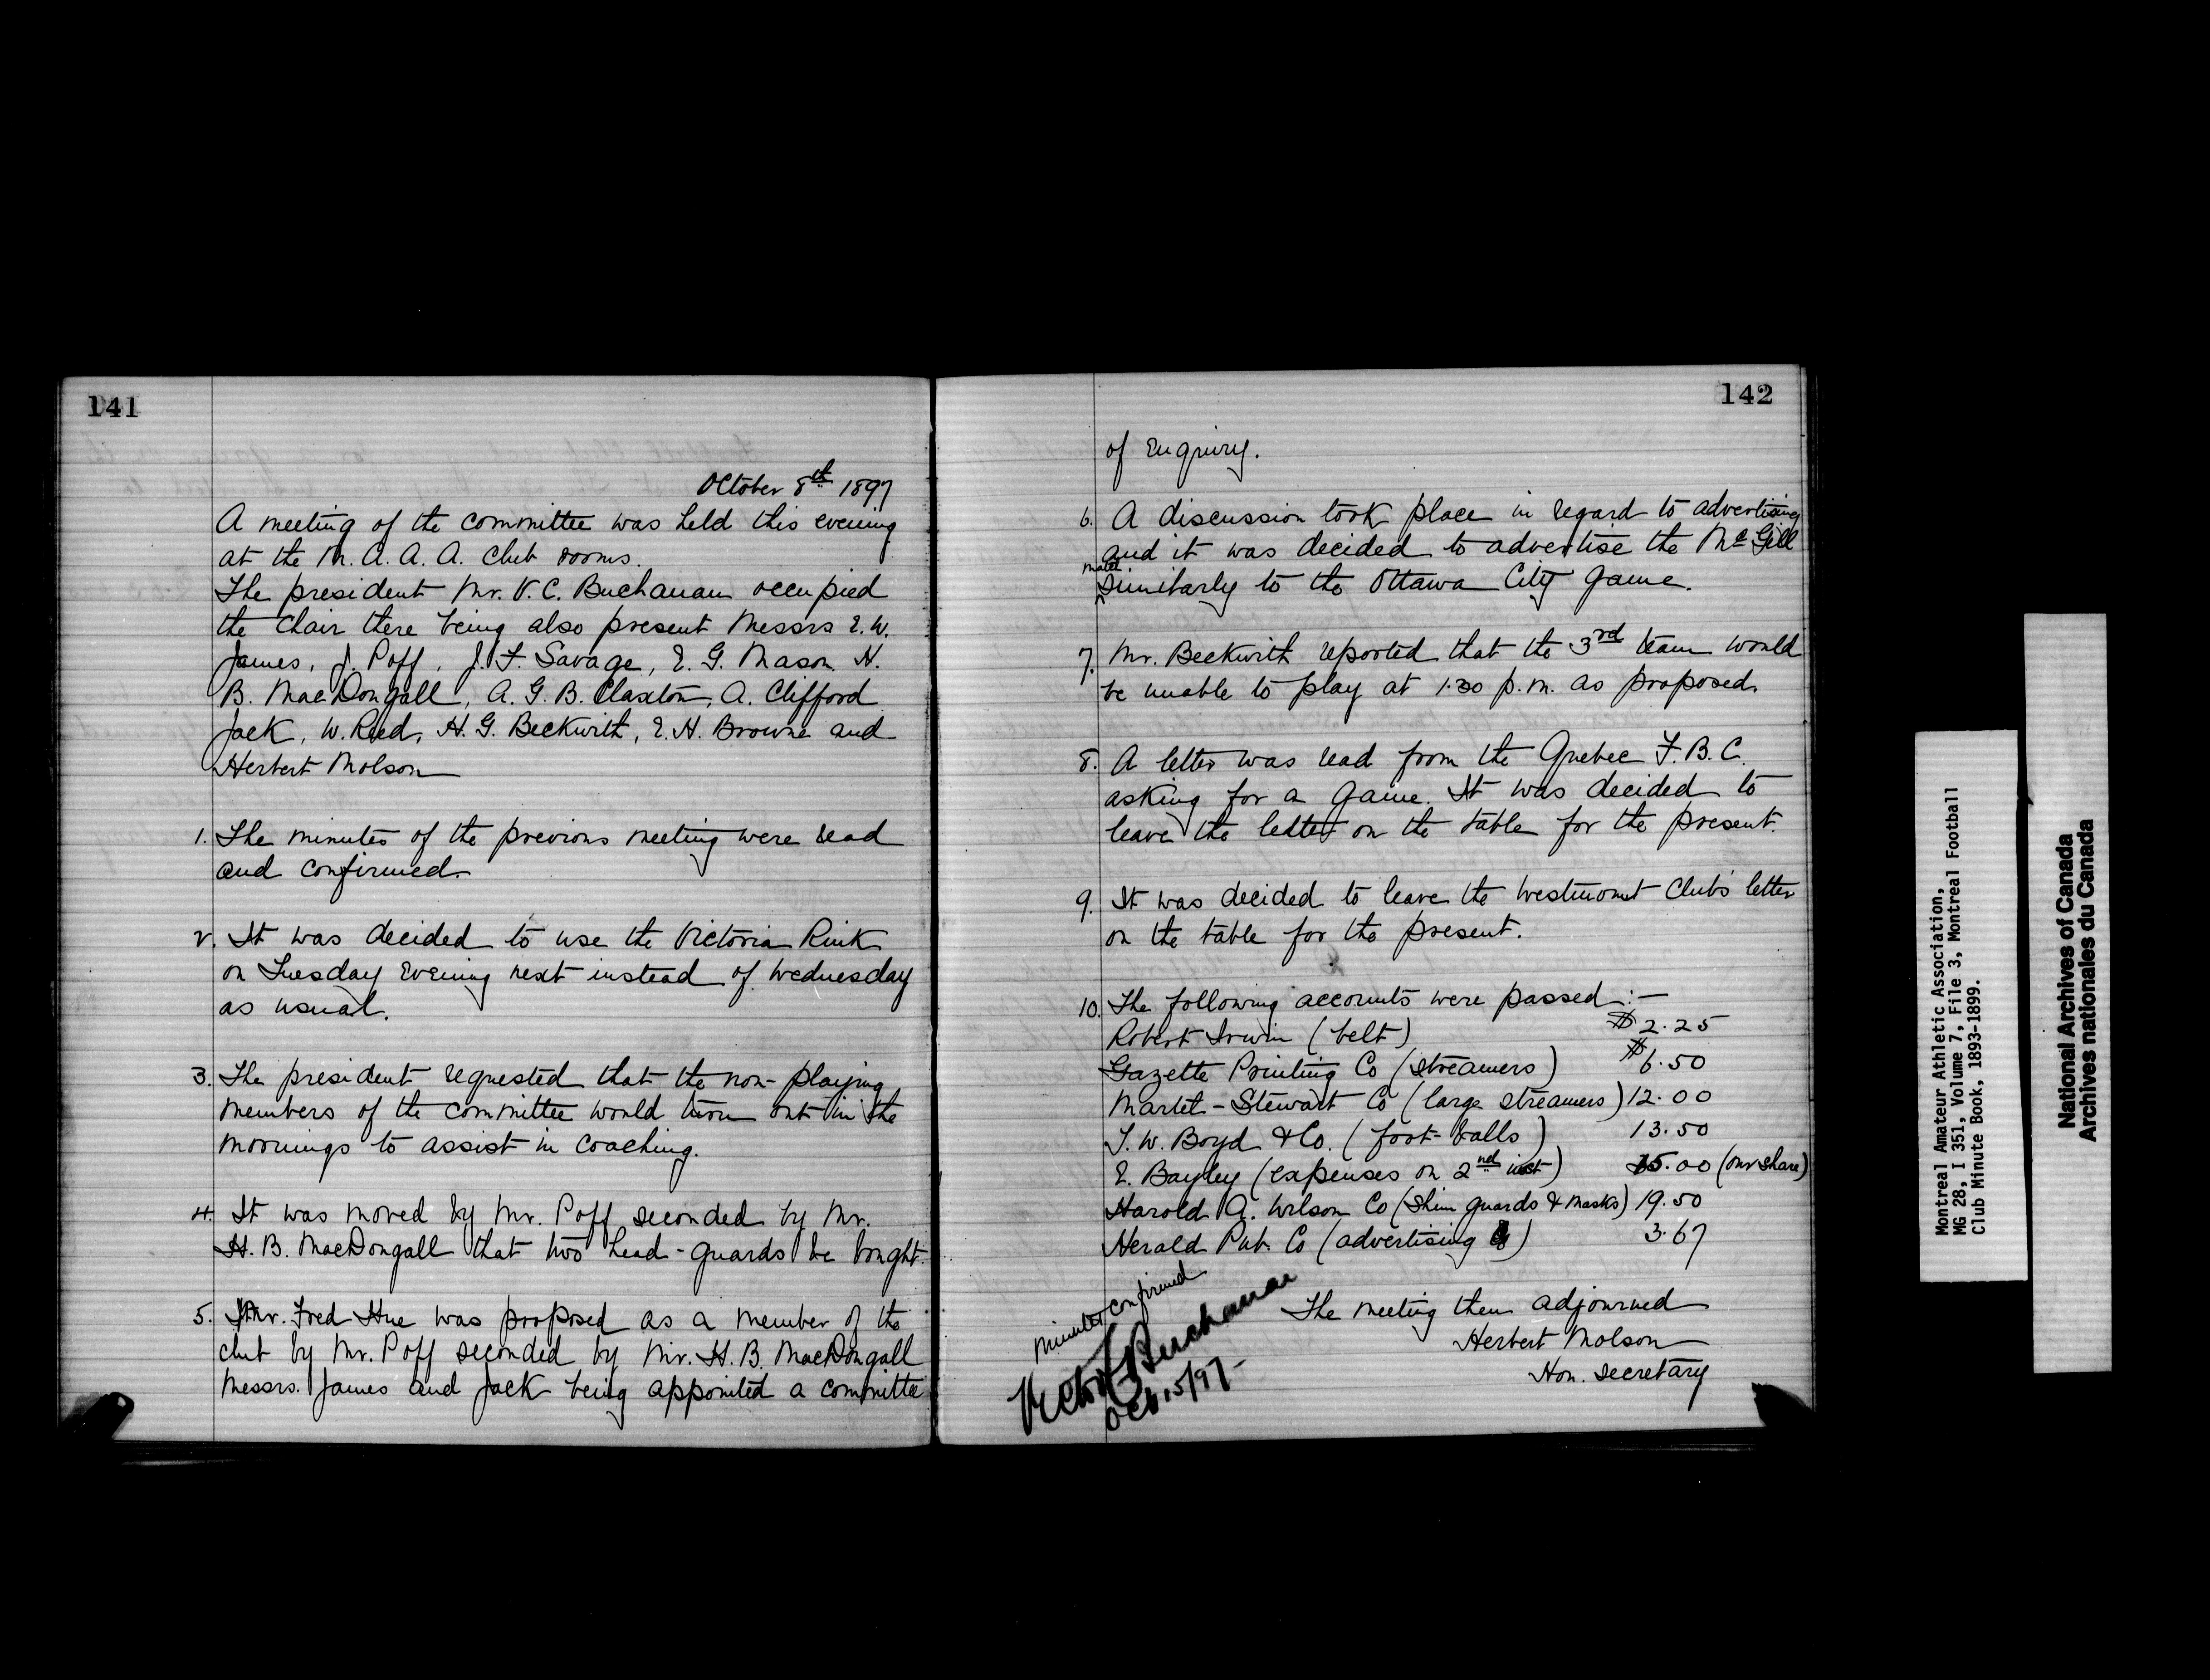 141
October 8th 1897
A meeting of the committee was held this evening
at the M. A. A. A. Club rooms.
The president Mr. V. C. Buchanan occupied
the Chair there being also present Messrs E. W.
James, J. Poff, J. F. Savage, E. G. Mason, H.
B. MacDougall, A. G. B. Claxton, A. Clifford
Jack, W. Reed, H. G. Beckwith, E. H. Browne and
Herbert Molson
1. The minutes of the previous meeting were read
and confirmed.
2. It was decided to use the Victoria Rink
on Tuesday Evening next instead of Wednesday
as usual.
3. The president requested that the non-playing
members of the committee would turn out in the
mornings to assist in coaching.
4. It was moved by Mr. Poff seconded by Mr.
H. B. MacDougall that two head-guards be bought.
5. Mr. Fred Hue was proposed as a member of the
club by Mr. Poff seconded by Mr. H. B. MacDougall
Messrs. James and Jack being appointed a committee
142
of Enquiry.
6. A discussion took place in regard to advertising
and it was decided to advertise the McGill
match similarly to the Ottawa City game.
7. Mr. Beckwith reported that the 3rd team would
be unable to play at 1.30 p.m. as proposed.
8. A letter was read from the Quebec F. B. C.
asking for a game. It was decided to
leave the letter on the table for the present.
9. It was decided to leave the Westmount Club's letter
on the table for the present.
10. The following accounts were passed :—
Robert Irwin (belt) $2.25
Gazette Printing Co (streamers) $6.50
Martel-Stewart Co (large streamers) 12.00
T. W. Boyd & Co. (foot-balls) 13.50
E. Bayley (expenses on 2nd inst) 15.00 (our share)
Harold A. Wilson Co (shin guards & masks) 19.50
Herald Pub. Co (advertising) 3.67
The meeting then adjourned
Herbert Molson
Hon. Secretary
Minutes confirmed
Victor C Buchanan
Oct 15/97-
Montreal Amateur Athletic Association,
MG 28, I 351, Volume 7, File 3, Montreal Football
Club Minute Book, 1893-1899.
National Archives of Canada
Archives nationales du Canada